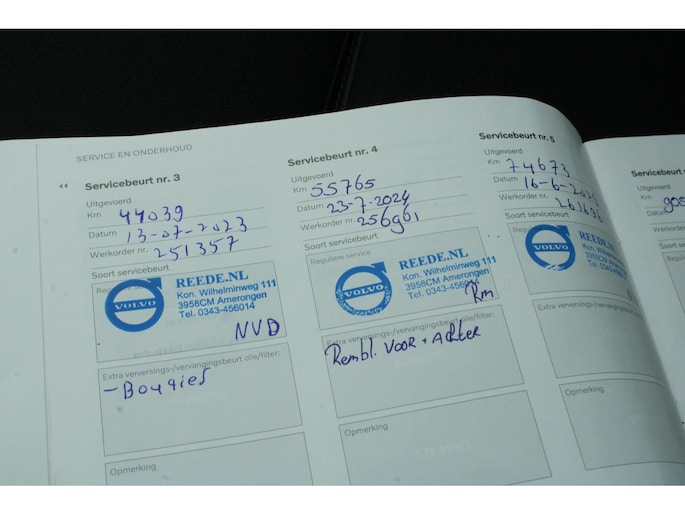 SERVICE EN ONDERHOUD
Servicebeurt nr. 3
Uitgevoerd
Km 44039
Datum 13-07-2023
Werkorder nr. 251357
Soort servicebeurt
VOLVO
REEDE.NL
Kon. Wilhelminweg 111
3958CM Amerongen
Tel. 0343-456014
NVD
Extra verversings-/vervangingsbeurt olie/filter:
- Bougies
Opmerking
Servicebeurt nr. 4
Uitgevoerd
Km 55765
Datum 23-7-2024
Werkorder nr. 256961
Soort servicebeurt
Reguliere service
VOLVO
REEDE.NL
Kon. Wilhelminweg 111
3958CM Amerongen
Tel. 0343-456014
Rm
Extra verversings-/vervangingsbeurt olie/filter:
Rembl. VOOR + Achter
Opmerking
STEMPEL
Servicebeurt nr. 5
Uitgevoerd
Km 74673
Datum 16-6-
Werkorder nr.
Soort servicebeurt
Reguliere service
VOLVO
REEDE.NL
Kon. Wilhelminweg
3958CM Amerongen
Tel. 0343-
Extra verversings-/vervangingsbeurt
Opmerking
Servicebeurt
Uitgevoerd
Km
Datum
Werkorder
Soort